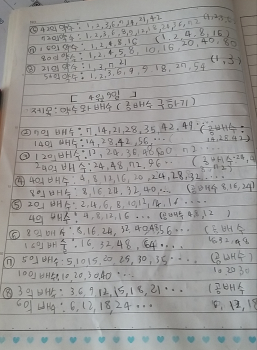 42의 약수 : 1, 2, 3, 6, 7, 14, 21, 42
16의 약수 : 1, 2, 4, 8, 16 (1, 2, 4, 8, 16)
80의 약수 : 1, 2, 4, 5, 8, 10, 16, 20, 40, 80
21의 약수 : 1, 3, 7, 21
54의 약수 : 1, 2, 3, 6, 9, 18, 27, 54 (1, 3)
제목 : 약수와 배수
② 7의 배수 : 7, 14, 21, 28, 35, 42, 49 ··· (공배수 :
14의 배수 : 14, 28, 42, 56, ··· 14, 28, 42)
③ 12의 배수 : 12, 24, 36, 48, 60 ··· (공배수 : 24,
24의 배수 : 24, 48, 72, 96 ···
④ 4의 배수 : 4, 8, 12, 16, 20, 24, 28, 32 ···
8의 배수 : 8, 16, 24, 32, 40 ··· (공배수 8, 16, 24)
⑤ 2의 배수 : 2, 4, 6, 8, 10, 12, 14, 16 ····
4의 배수 : 4, 8, 12, 16 ··· (공배수 4, 8, 12)
⑥ 8의 배수 : 8, 16, 24, 32, 40, 48, 56 ··· (공배수
16의 배수 : 16, 32, 48, 64 ··· 16, 32, 48
⑦ 5의 배수 : 5, 10, 15, 20, 25, 30, 35 ···· (공배수
10의 배수 : 10, 20, 30, 40 ··· 10 20 30
⑧ 3의 배수 : 3, 6, 9, 12, 15, 18, 21 ··· (공배수
6의 배수 : 6, 12, 18, 24 ··· 6, 12, 18